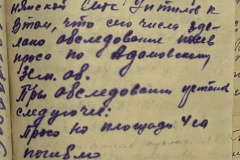 в том, что сего числа сде-
лано обследование посев
проса по Адамовскому
Зем. об.
При обследовании установ
следующее:
Просо на площади 4 га
погибло